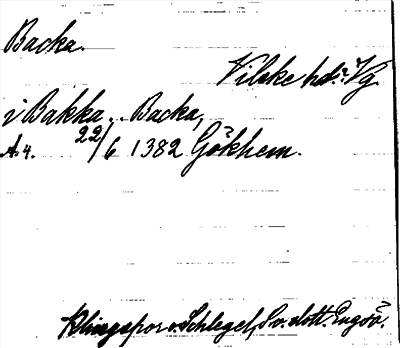 Backa.
Vilske hd. Vg.
i Bakka. Backa,
A. 4. 22/6 1382 Gökhem.
Klingspor o. Schlegel, Sv. slott. Engsö.